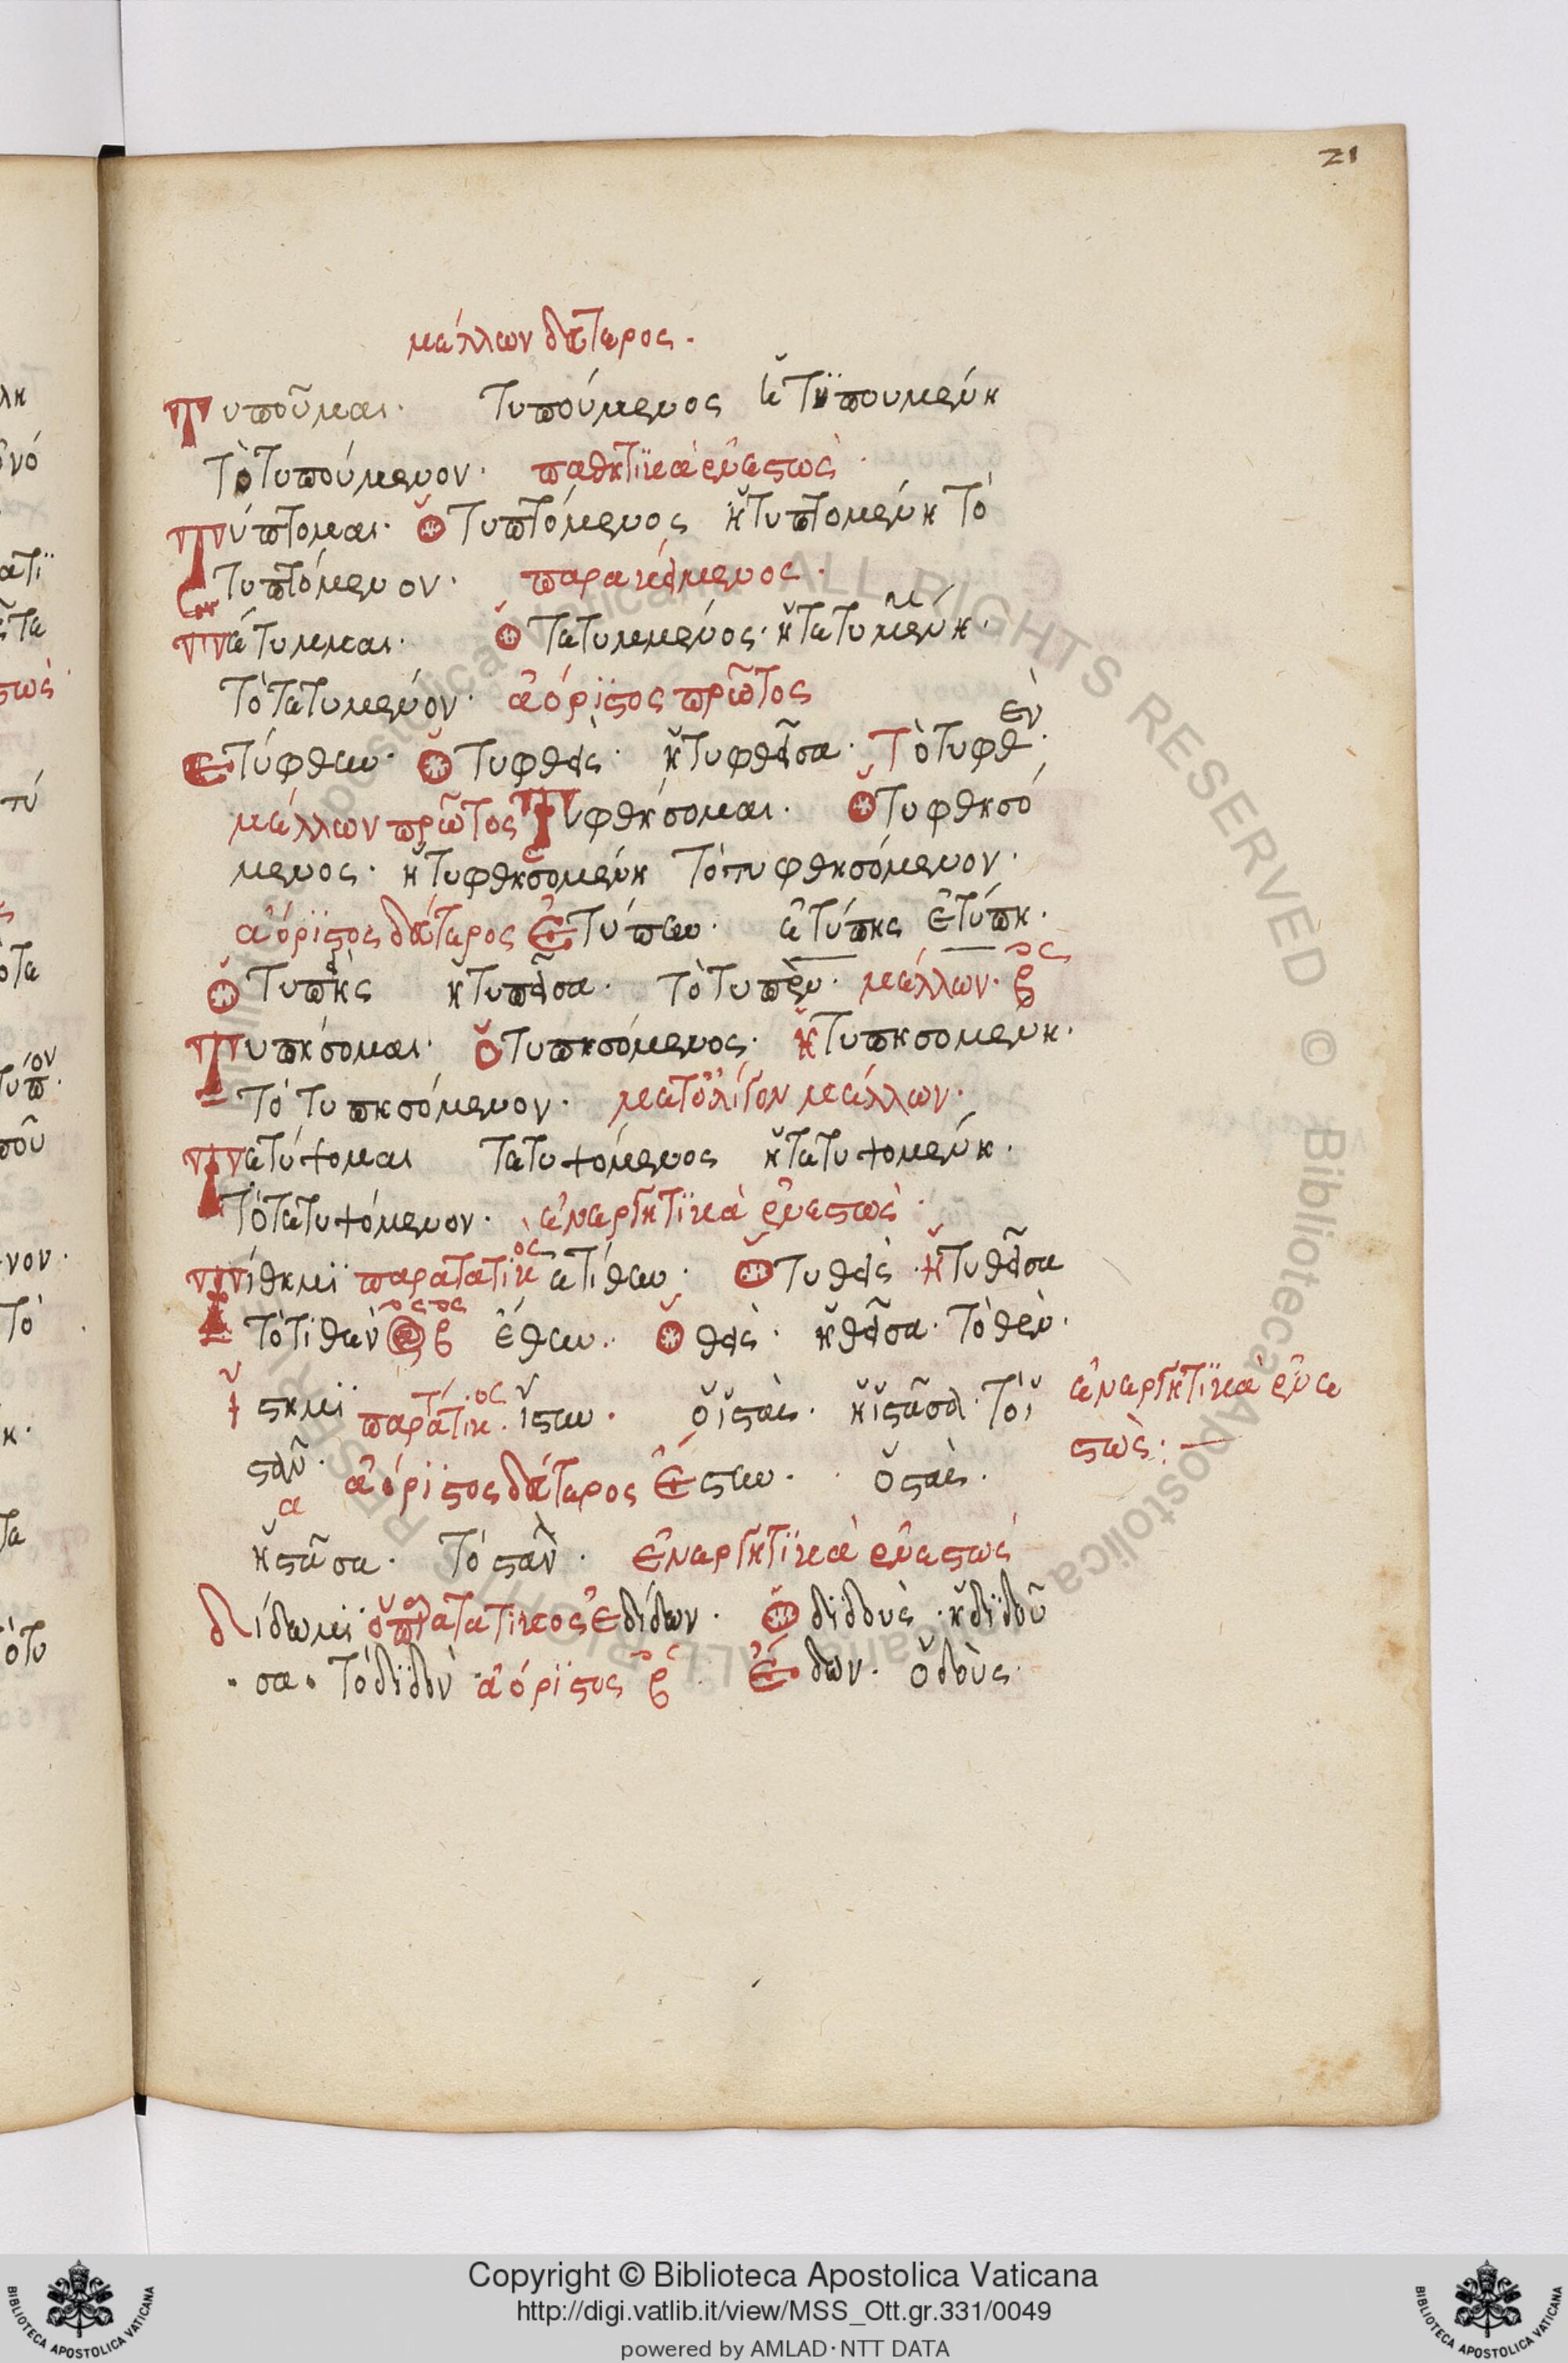 21
μέλλων δεύτερος.
Τυποῦμαι· τυπούμενος ἡ τϋπουμένη
τὸ τυπούμενον· παθητϊκὰ ἐνεστὼς·
Τύπτομαι· ὁ τυπτόμενος ἡ τυπτομένη τὸ
τυπτόμενον· παρακείμενος·
τέτυμμαι· ὁ τετυμμένος· ἡ τετυμμένη·
τὸ τετυμένον· ἀόρϊστος πρῶτος
ἐτύφθην· ὁ τυφθεὶς· ἡ τυφθεῖσα· Τὸ τυφθὲν·
μέλλων πρῶτος Τυφθήσομαι· ὁ τυφθησό
μενος· ἡ τυφθησομένη τὸ τυφθησόμενον·
ἀόρϊστος δεύτερος ἐτύπην· ἐτύπης ἐτύπη·
ὁ τυπεὶς ἡ τυπεῖσα· τὸ τυπὲν· μέλλων· βος
Τυπήσομαι· ὁ τυπησόμενος· ἡ τυπησομένη·
τὸ τυπησόμενον· μετ' ὀλίγον μέλλων·
Τετύψομαι τετυψόμενος ἡ τετυψομένη·
τὸ τετυψόμενον· ἐνεργητϊκὰ ἐνεστὼς·
τίθημϊ παρατατικὸς ἐτίθην· ὁ τυθεὶς ἡ τυθεῖσα
τὸ τιθὲν αος βος ἔθην· ὁ θεὶς· ἡ θεῖσα· τὸ θὲν·
ἵστημϊ παρατατικος· ἵστην· ὁ ἱστὰς· ἡ ἱστᾶσα· τὸ ἱ
στὰν· ἀόρϊστος δεύτερος ἔστην· ὁ στὰς·
ἡ στᾶσα· τὸ στὰν· ἐνεργητϊκὰ ἐνεστὼς
δίδωμϊ ὁ παρατατικος ἐδίδων· ὁ δϊδοὺς· ἡ δϊδοῦ
σα· τὸ δϊδὸν ἀόρϊστος β ἔδων· ὁ δοὺς·
ἐνεργητϊκὰ ἐνε
στὼς:
Copyright © Biblioteca Apostolica Vaticana
http://digi.vatlib.it/view/MSS_Ott.gr.331/0049
powered by AMLAD·NTT DATA
BIBLIOTECA APOSTOLICA VATICANA
BIBLIOTECA APOSTOLICA VATICANA